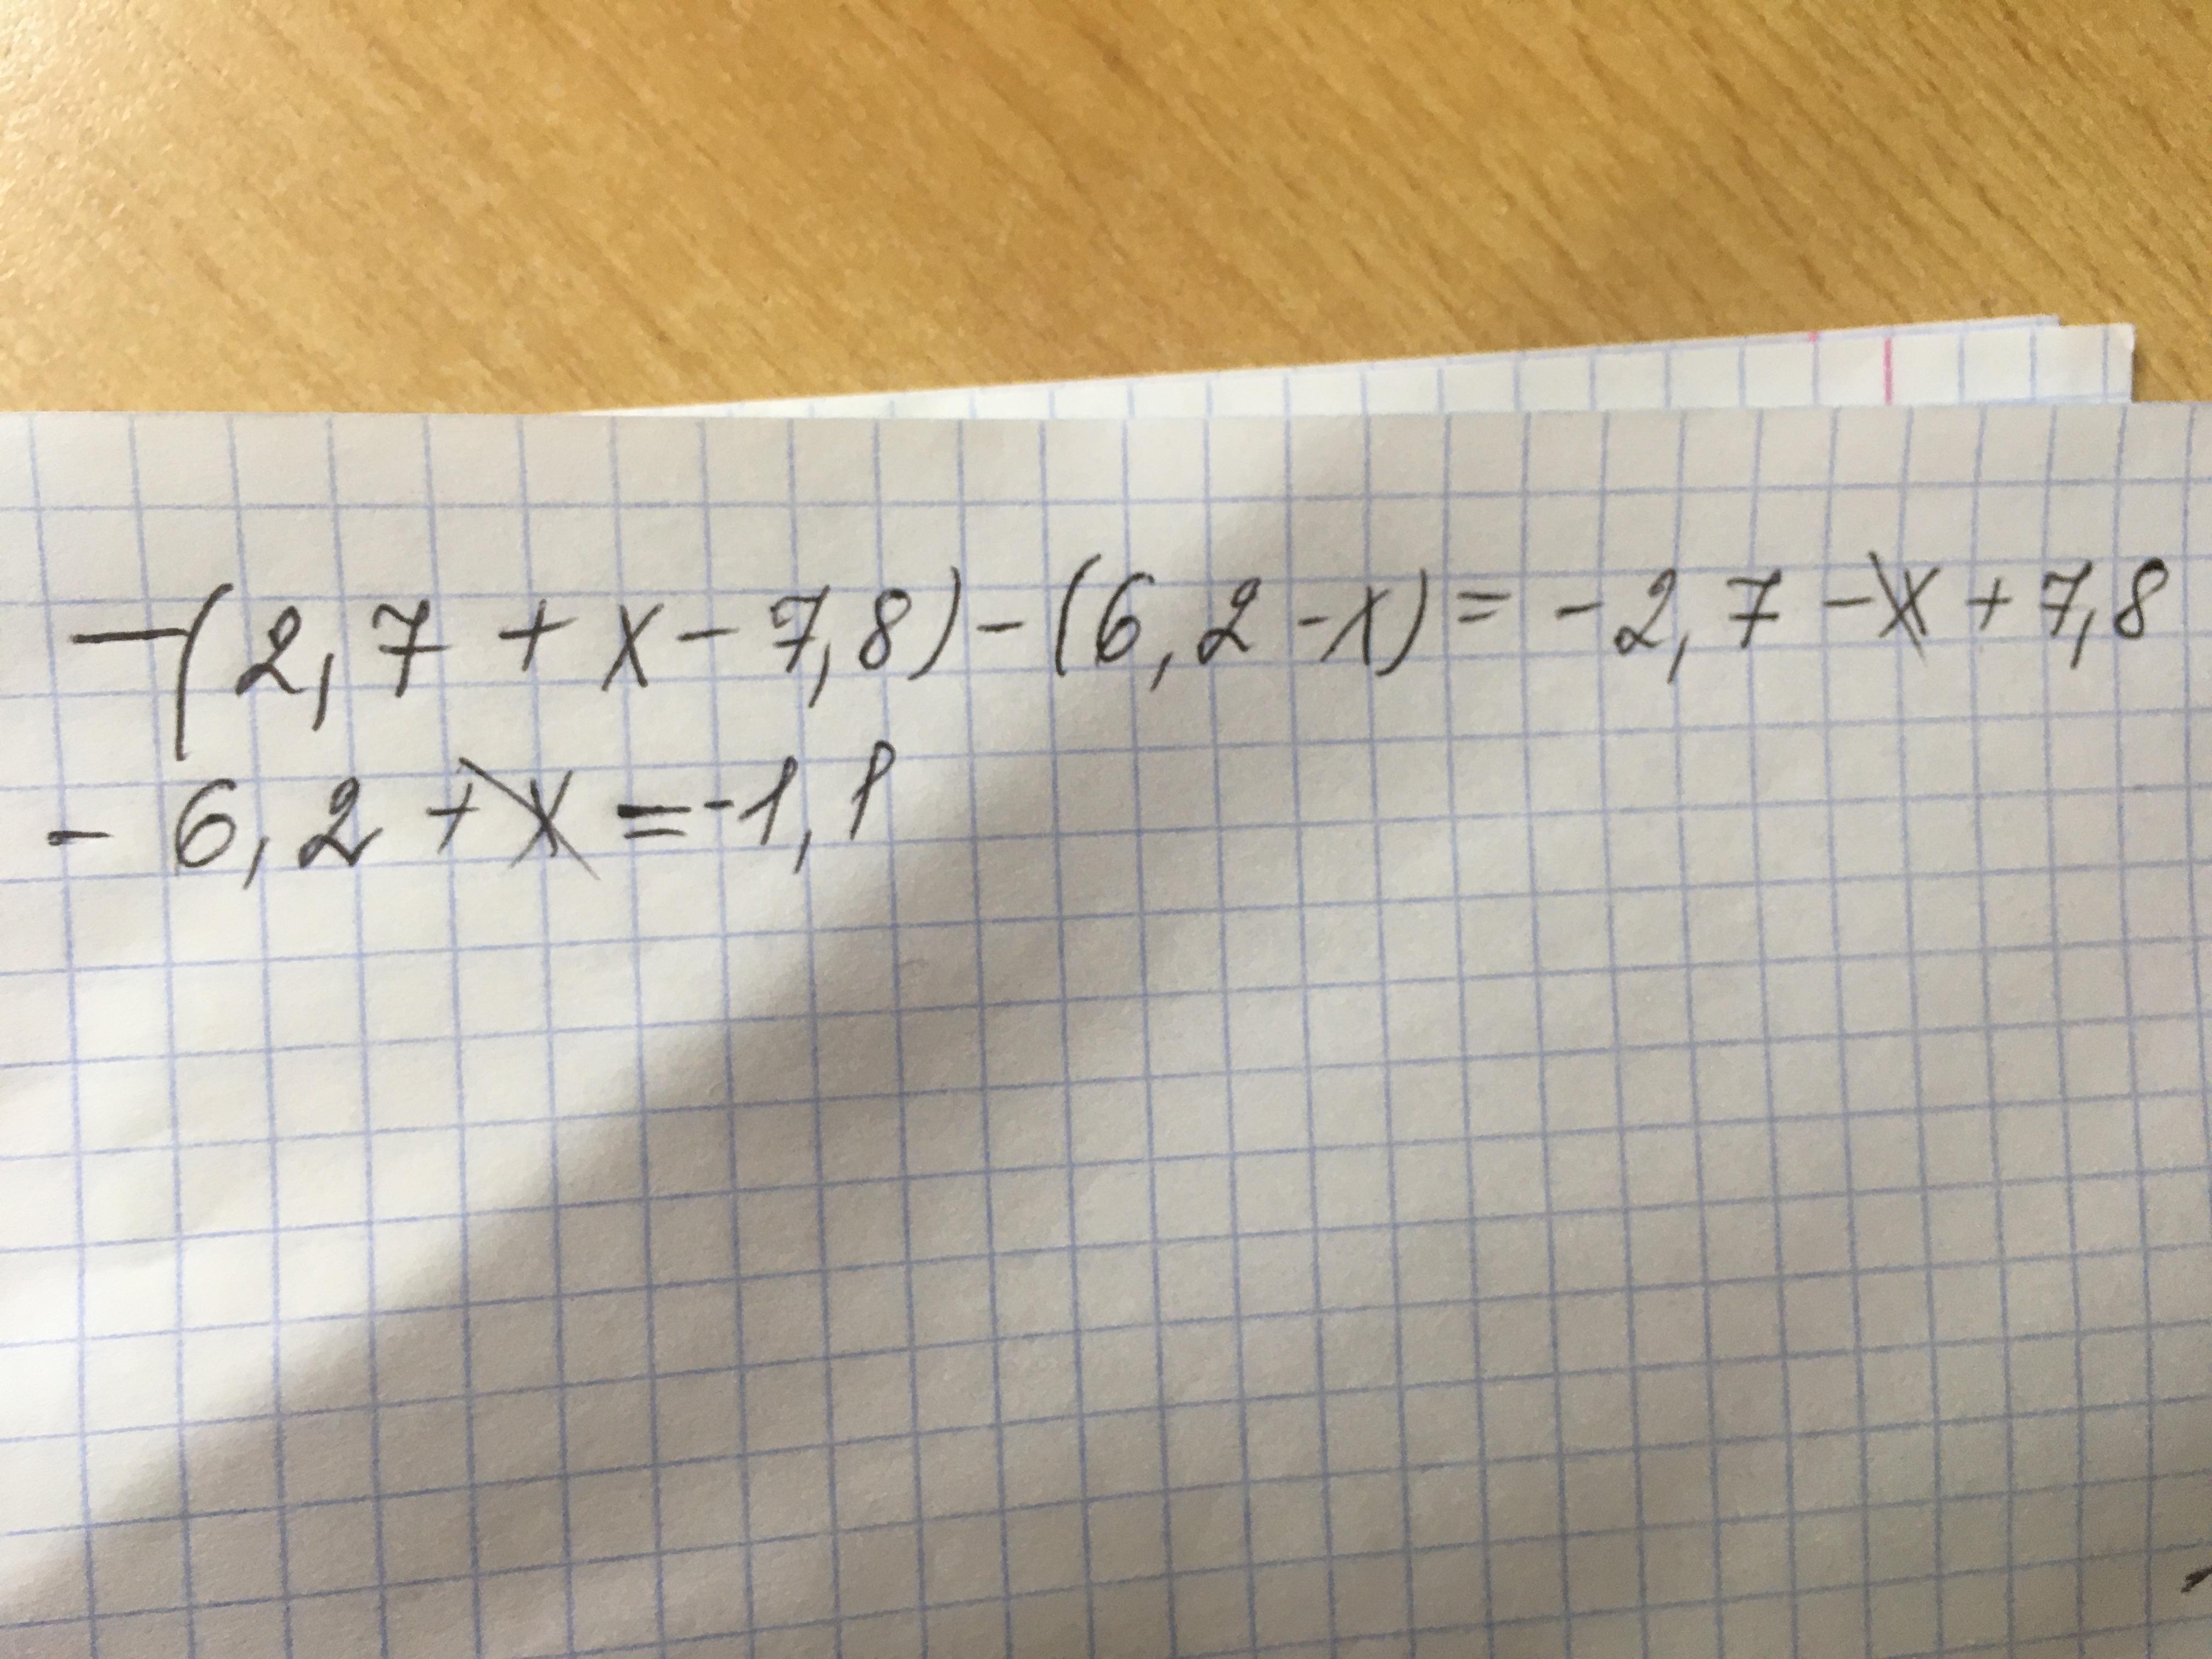 -(2,7 + x - 7,8) - (6,2 - x) = - 2,7 - x + 7,8
- 6,2 + x = -1,1